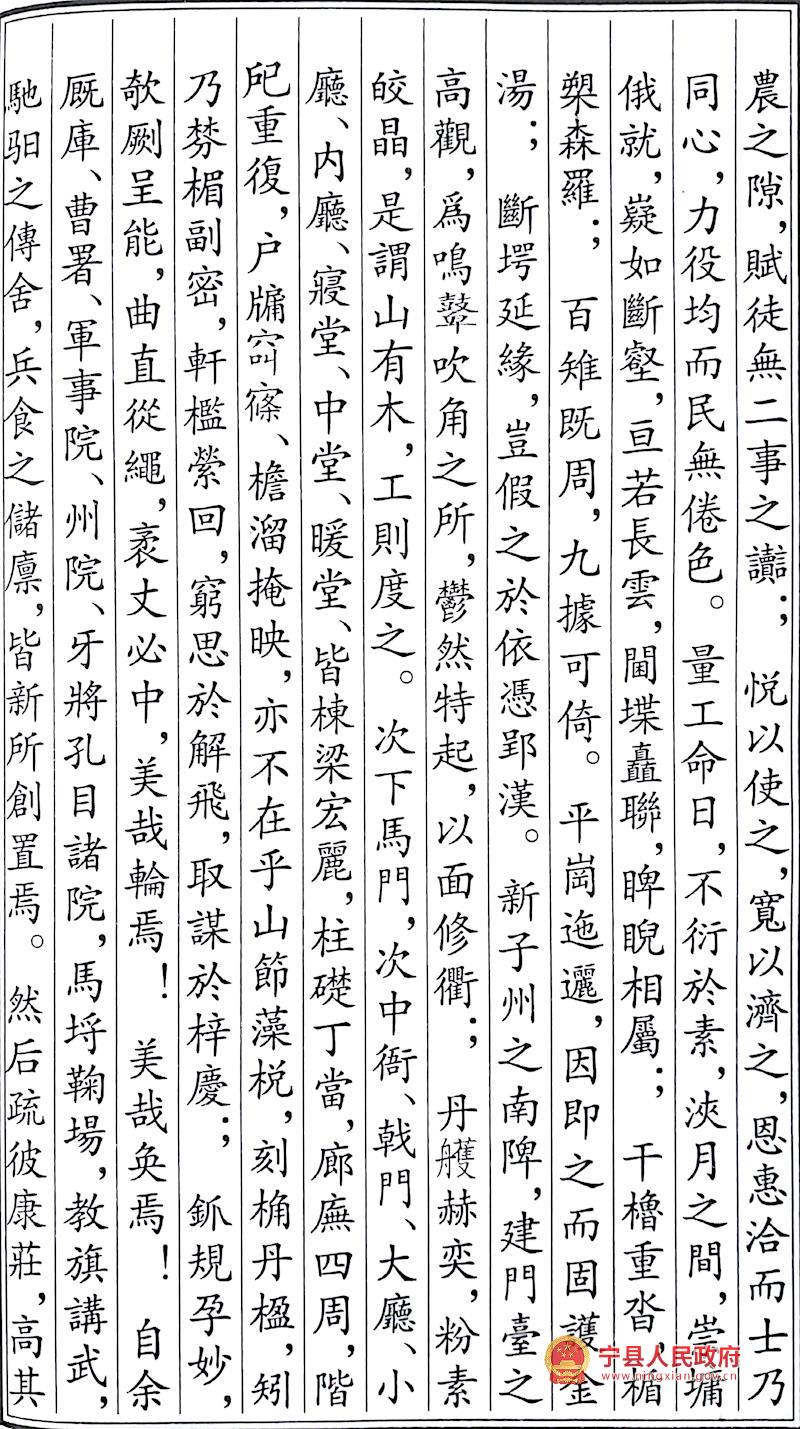 農之隙，賦徒無二事之讟；悦以使之，寬以濟之，恩惠洽而士乃
同心，力役均而民無倦色。量工命日，不衍於素，浹月之間，崇墉
俄就，嶷如斷壑，亘若長雲，閫堞矗聯，睥睨相屬；干櫓重沓，楯
槊森羅；百雉既周，九據可倚。平崗迤邐，因即之而固護金
湯；斷塄延緣，豈假之於依憑郢漢。新子州之南陴，建門臺之
高觀，爲鳴鼛吹角之所，鬱然特起，以面修衢；丹艧赫奕，粉素
皎晶，是謂山有木，工則度之。次下馬門，次中衙、戟門、大廳、小
廳、内廳、寢堂、中堂、暖堂、皆棟梁宏麗，柱礎丁當，廊廡四周，階
戺重復，户牖窈窱、檐溜掩映，亦不在乎山節藻棁，刻桷丹楹，矧
乃棼楣副密，軒檻縈回，窮思於解飛，取謀於梓慶；釽規孕妙，
欹劂呈能，曲直從繩，袤丈必中，美哉輪焉！美哉奂焉！自余
厩庫、曹署、軍事院、州院、牙將孔目諸院，馬埒鞠場，教旗講武，
馳驲之傳舍，兵食之儲廪，皆新所創置焉。然后疏彼康莊，高其
宁县人民政府
www.ningxian.gov.cn